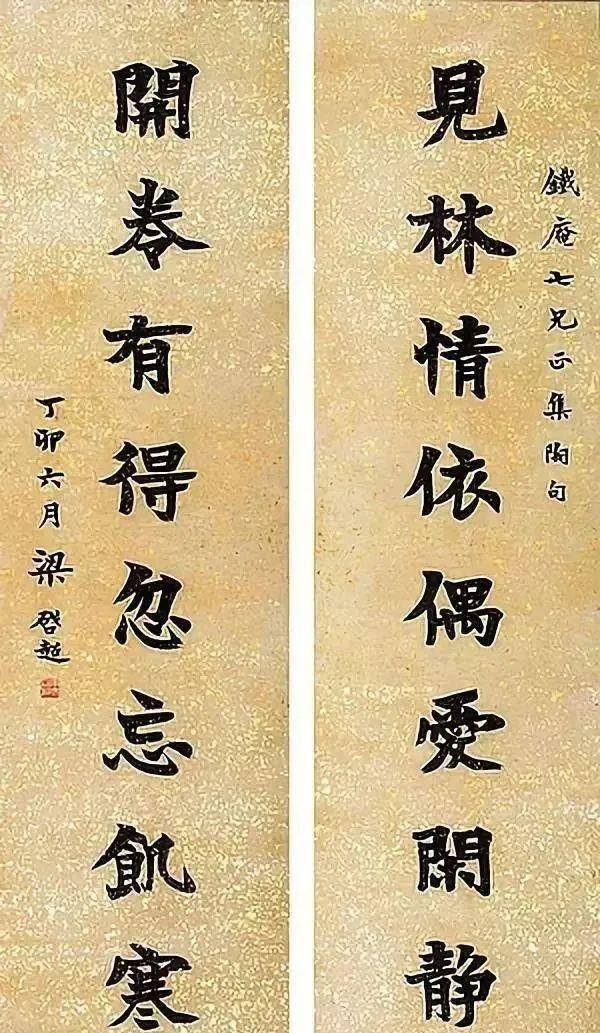 鐵庵七兄正集陶句
見林情依偶愛閑静
開卷有得忽忘飢寒
丁卯六月梁啓超